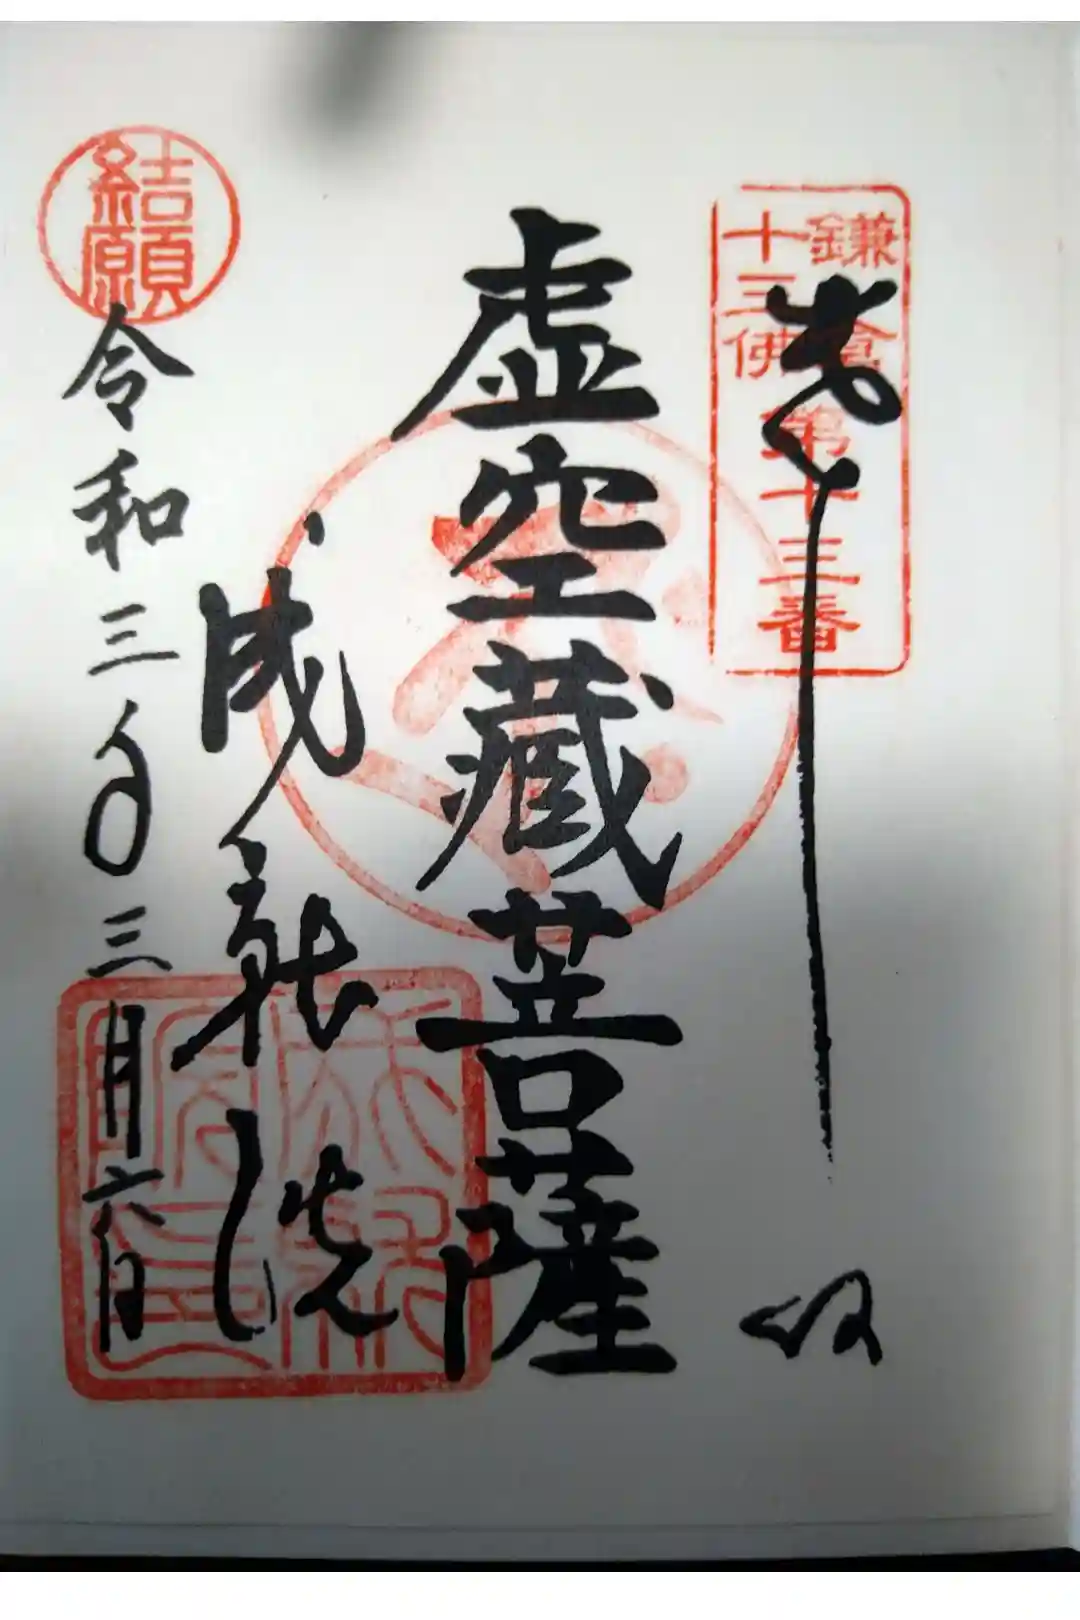 奉拝
鎌倉
十三佛
第十三番
虚空藏菩薩
成就院
結願
令和三年三月六日